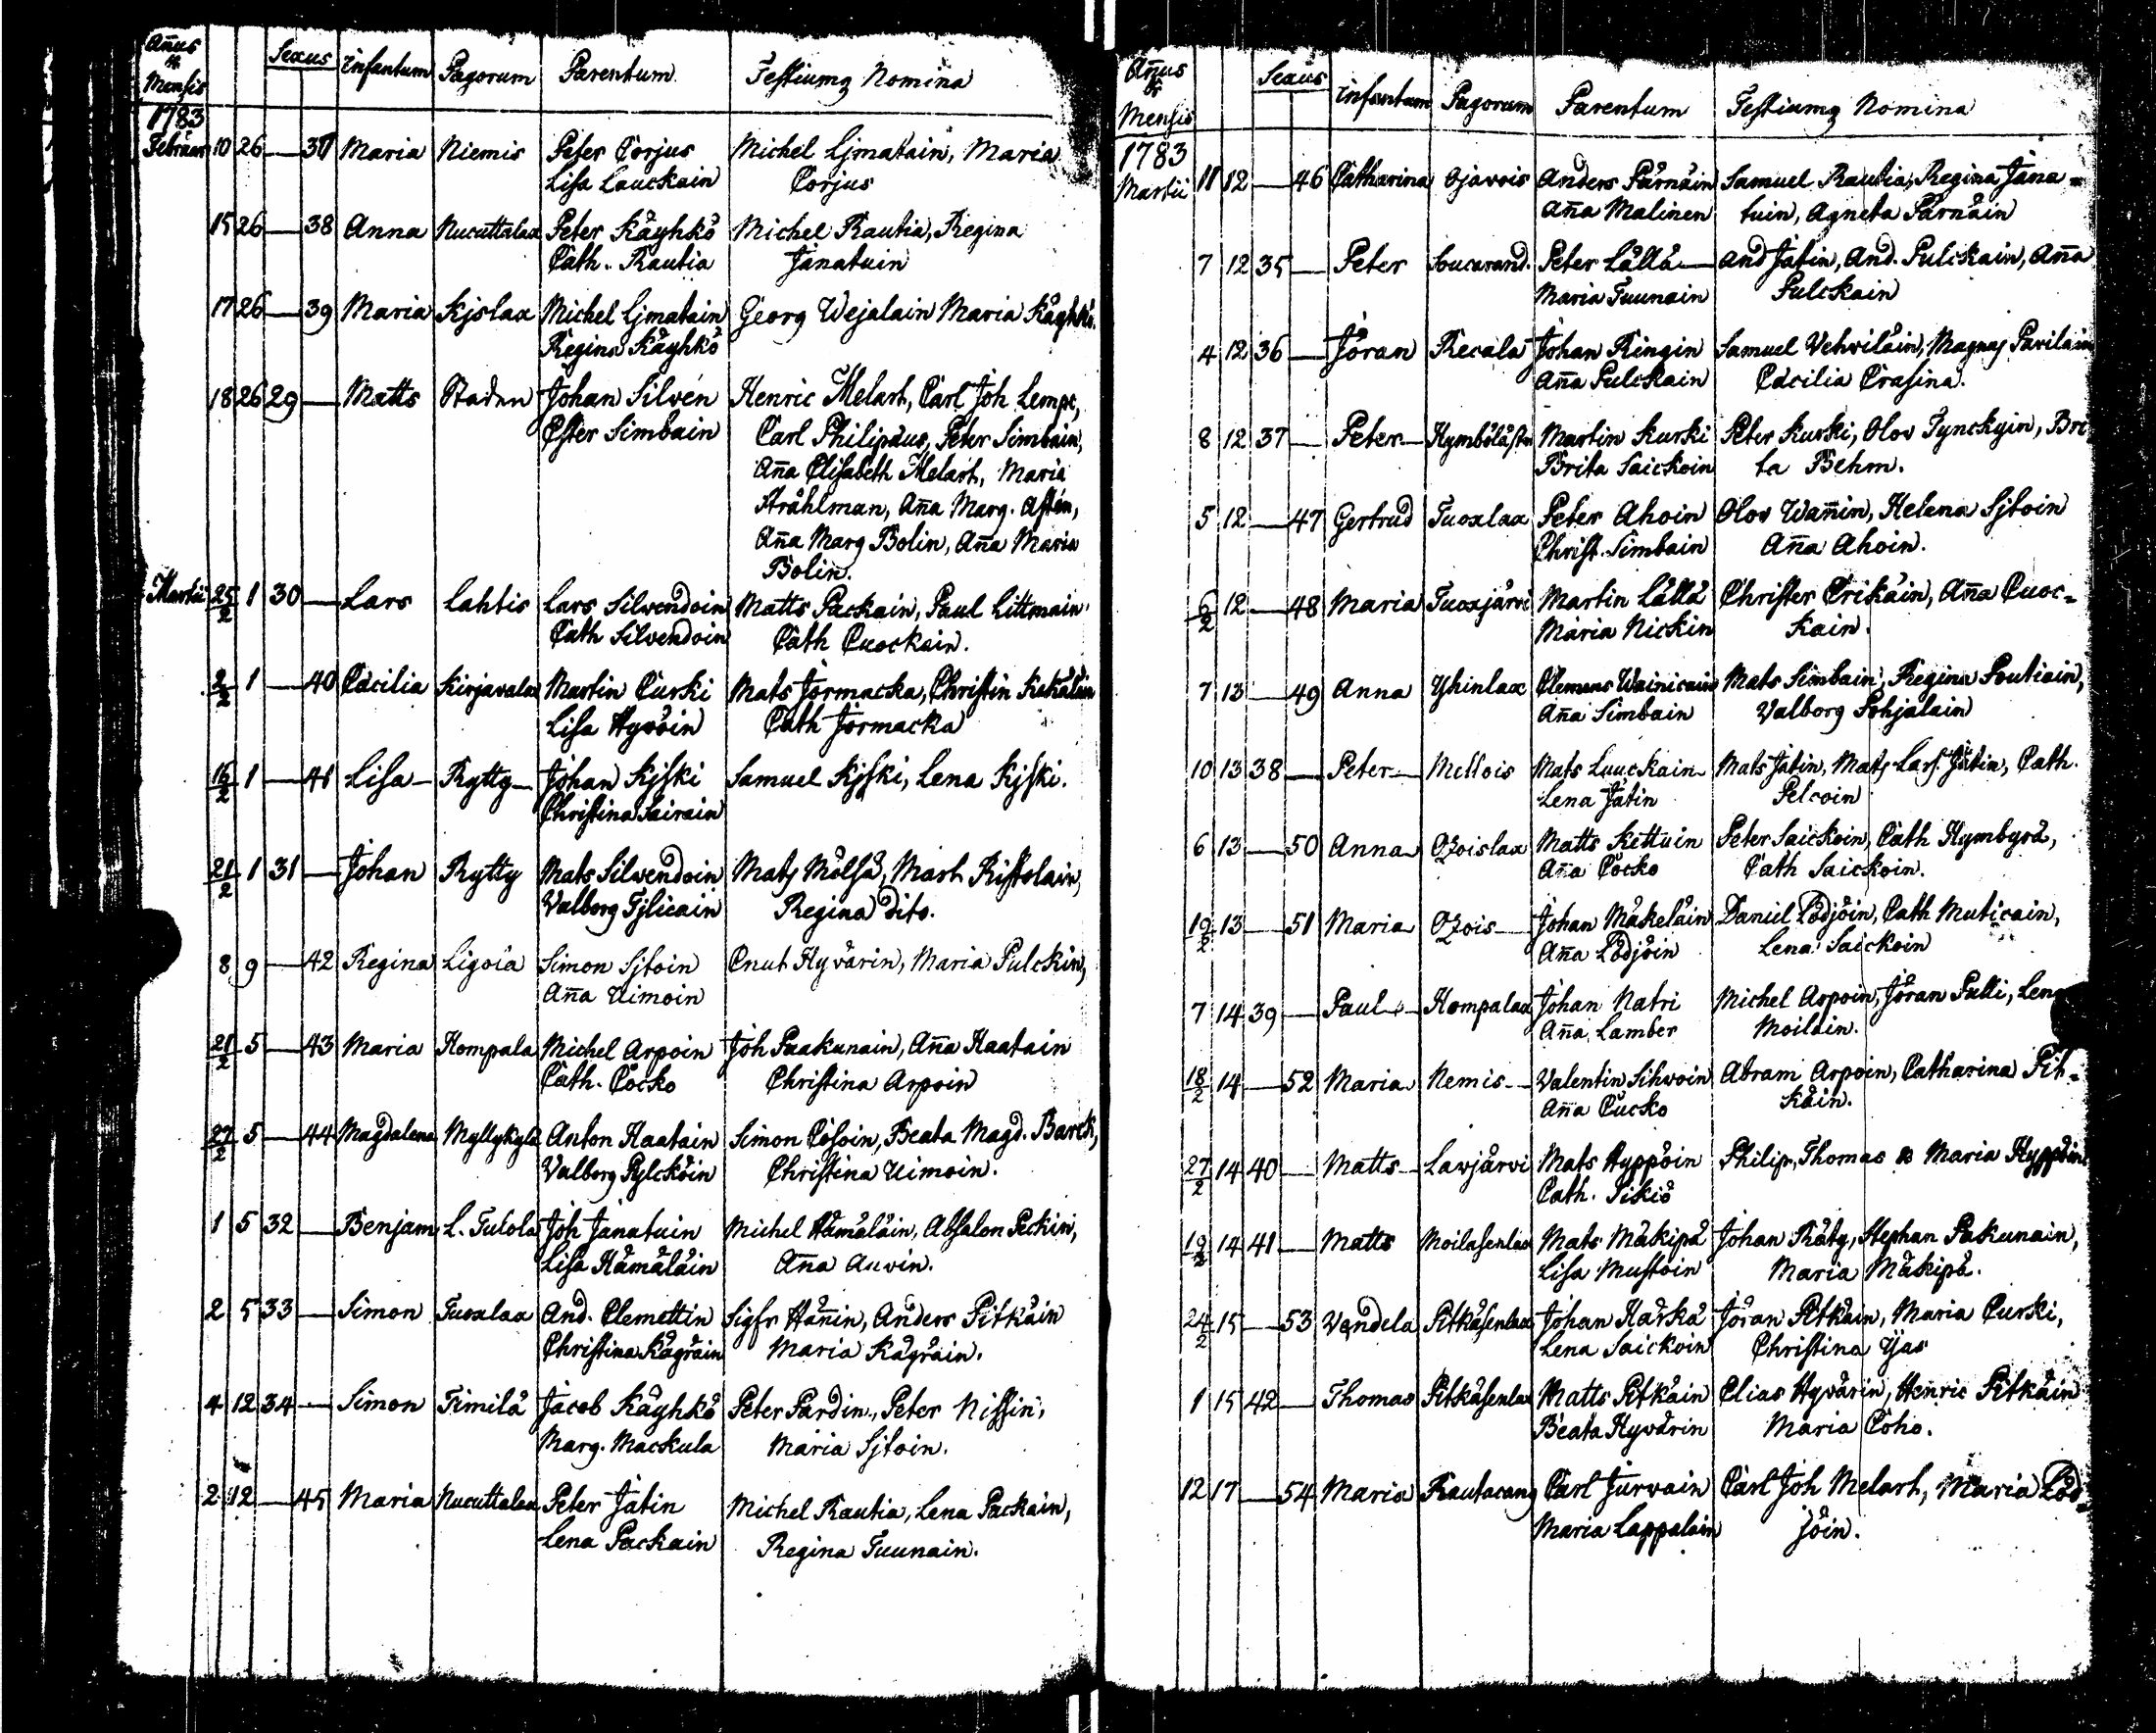 Añus
&
Mensis
Sexus Infantum Pagorum Parentum Testiumq Nomina
1783
Februar 10 26 — 37 Maria Niemis Peter Corjus Michel Ljmatain, Maria
Lisa Lauckain Corjus
15 26 — 38 Anna Nucuttalax Peter Käyhkö Michel Rautia, Regina
Cath. Rautia Janatuin
17 26 — 39 Maria Kjslax Michel Ljmatain Georg Wejalain Maria Käyhkö.
Regina Käyhkö
18 26 29 — Matts Staden Johan Silvén Henric Melart, Carl Joh Lempe,
Ester Simbain Carl Philipæus, Peter Simbain,
Aña Elisabeth Melart, Maria
Stråhlman, Aña Marg. Astén,
Aña Marg Bolin, Aña Maria
Bolin.
Martii 25/2 1 30 — Lars Lahtis Lars Silvendoin Matts Packain, Paul Littmain
Cath Silvendoin Cath Cuockain.
2/2 1 — 40 Cæcilia Kirjavalax Martin Curski Mats Jormacka, Christin Kekäläin
Lisa Hyvöin Cath Jormacka
16/2 1 — 41 Lisa — Rytty — Johan Kjski Samuel Kjski, Lena Kjski.
Christina Sairain
21/2 1 31 — Johan Rytty Mats Silvendoin Mats Mölsä, Mart Ristolain,
Valborg Tjlicain Regina dito.
8 9 — 42 Regina Ligoia Simon Sjtoin Cnut Hyvärin, Maria Pulckin,
Aña Uimoin
21/2 5 — 43 Maria Hompala Michel Arpoin Joh Paakunain, Aña Haatain
Cath. Cocko Christina Arpoin
27/2 5 — 44 Magdalena Myllykylä Anton Haatain Simon Cosoin, Beata Magd. Barck,
Valborg Pylcköin Christina Uimoin.
1 5 32 — Benjam L. Tulola Joh Janatuin Michel Hämäläin, Absalon Peckin,
Lisa Hämäläin Aña Auvin.
2 5 33 — Simon Tuoxlax And. Clemettin Sigfr Hänin, Anders Pitkäin
Christina Kägräin Maria Kägräin.
4 12 34 — Simon Timilä Jacob Käyhkö Peter Pardin, Peter Nissin,
Marg. Mackula Maria Sjtoin.
2 12 — 45 Maria Nucuttalax Peter Jatin Michel Rautia, Lena Packain,
Lena Packain Regina Tuunain.
Añus
&
Mensis
Sexus Infantum Pagorum Parentum Testiumq Nomina
1783
Martii 11 12 — 46 Catharina Ojavois Anders Pärnäin Samuel Rautia, Regina Jana=
Aña Malinen tuin, Agneta Pärnäin
7 12 35 — Peter Soucurand. Peter Lällä — And Jatin, And. Pulckain, Aña
Maria Tuunain Pulckain
4 12 36 — Jöran Recala Johan Ringin Samuel Vehviläin, Magnus Pavilain
Aña Pulckain Cæcilia Orasina.
8 12 37 — Peter — Hymböläst. Martin Kurki Peter Kurki, Olov Tynckyin, Bri
Brita Saickoin ta Behm.
5 12 — 47 Gertrud Tuoxlax Peter Ahoin Olov Wañin, Helena Sjtoin
Christ. Simbain Aña Ahoin.
6/2 12 — 48 Maria Tuoxjärvi Martin Lällä Christer Erikäin, Aña Cuoc=
Maria Nickin kain.
7 13 — 49 Anna Yhinlax Clemens Wainicain Mats Simbain, Regina Poutiain,
Aña Simbain Valborg Pohjalain
10 13 38 — Peter — Mellois Mats Lauckain Mats Jatin, Mats Lars. Jatin, Cath.
Lena Jatin Pelcoin
6 13 — 50 Anna Ozoislax Matts Kettuin Peter Saickoin, Cath Hymbyrä,
Aña Cocko Cath Saickoin.
19/2 13 — 51 Maria Ozois — Johan Mäkeläin Daniel Lödjöin, Cath Muticain,
Aña Lödjöin Lena Saickoin
7 14 39 — Paul — Hompalax Johan Natri Michel Arpoin, Jöran Pulli, Lena
Aña Lamber Moilain.
18/2 14 — 52 Maria Nemis — Valentin Sihvoin Abram Arpoin, Catharina Pit=
Aña Cucko käin.
27/2 14 40 — Matts — Lavjärvi Mats Hyppöin Philip, Thomas & Maria Hyppöin
Cath. Sikiö
19/2 14 41 — Matts Moilasenlax Mats Mäkipä Johan Räty, Stephan Pakunain,
Lisa Mustoin Maria Mäkipä.
24/2 15 — 53 Vendela Pitkäsenlax Johan Härkä Jöran Pitkäin, Maria Curki,
Lena Saickoin Christina Yjas
1 15 42 — Thomas Pitkäsenlax Matts Pitkäin Elias Hyvärin, Henric Pitkäin
Beata Hyvärin Maria Coho.
12 17 — 54 Maria Rautacang Carl Jurvain Carl Joh Melart, Maria Löd=
Maria Lappalain jöin.